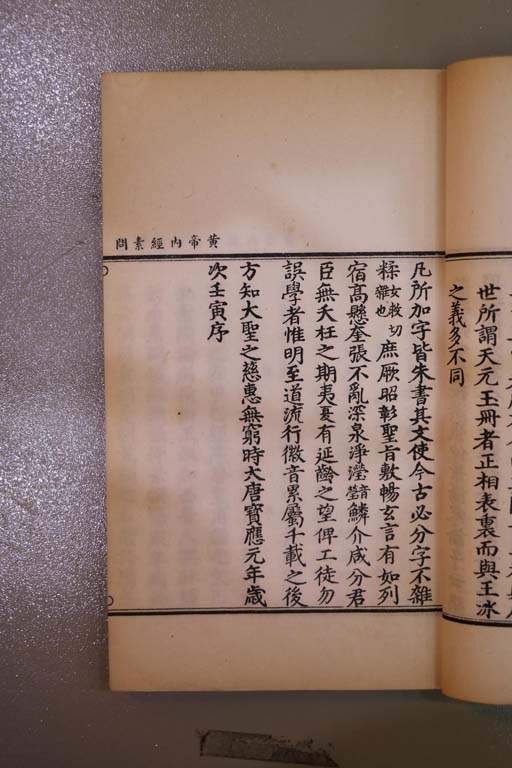 世所謂天元玉冊者正相表裏而與王冰
之義多不同
黃帝內經素問
凡所加字皆朱書其文使今古必分字不雜
糅女救切雜也庶厥昭彰聖旨敷暢玄言有如列
宿高懸奎張不亂深泉淨瀅鱗介咸分君
臣無夭枉之期夷夏有延齡之望俾工徒勿
誤學者惟明至道流行徽音累屬千載之後
方知大聖之慈惠無窮時大唐寶應元年歲
次壬寅序